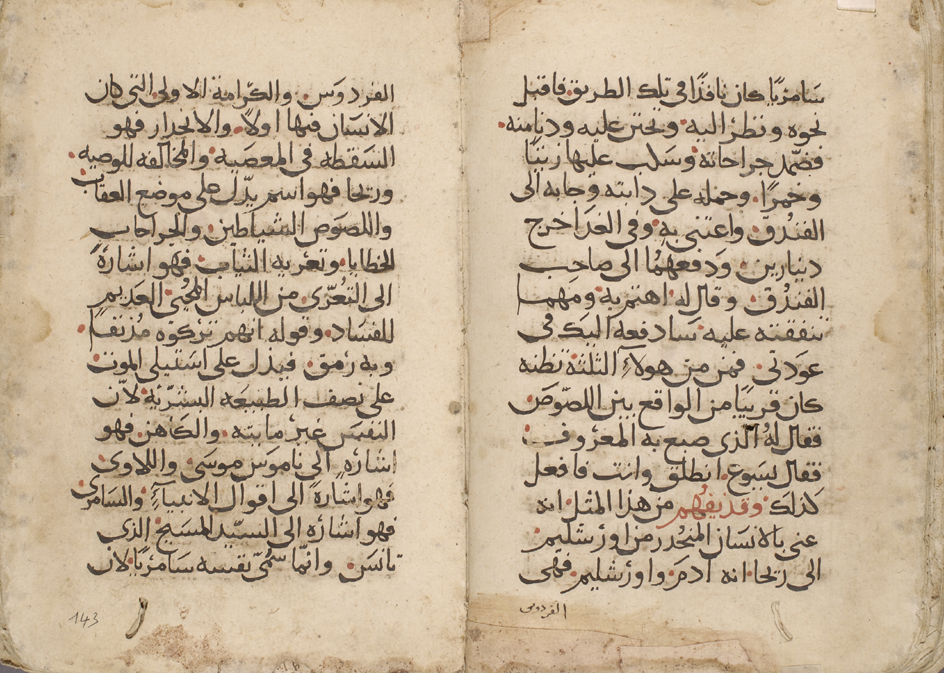 سامريًا كان نافذًا في تلك الطريق فاقبل
نحوه ونظر اليه وتحنن عليه ودنا منه
فضمد جراحاته وسكب عليها زيتًا
وخمرًا. وحمله على دابته وجابه الى
الفندق واعتنى به وفي الغد اخرج
دينارين ودفعهما الى صاحب
الفندق وقال له اهتم به ومهما
تنفقته عليه نسادفعه اليك في
عودتي. فمن من هولاء الثلثة تظنه
كان قريبًا من الواقع بين اللصوص
فقال له الذي صنع به المعروف
فقال يسوع انطلق وانت فافعل
كذلك وقد يفهم من هذا المثل انه
عنى بالانسان المنحدر من اورشليم
الى ريحا انه ادم واورشليم فهى
الفردوس
الفردوس والكرامة الاولى التي كان
الانسان فيها اولًا. والانحدار فهو
السقطه في المعصيه والمخالفه للوصيه
وريحا فهو اسم يدل على موضع العقاب
واللصوص الشياطين والجراحات
الخطايا وتعريه الثياب فهو اشارة
الى التعرى من اللباس المحيى العديم
للفساد وقوله انهم تركوه مدنفًا
وبه رمق فيدل على استيلى الموت
على نصف الطبيعه البشريه لان
النفس غير مايته والكاهن فهو
اشاره الى ناموس موسى واللاوى
فهو اشارة الى اقوال الانبياء والسامرى
فهو اشاره الى السيد المسيح الذى
تانس وانما سمى نفسه سامريًا لان
143